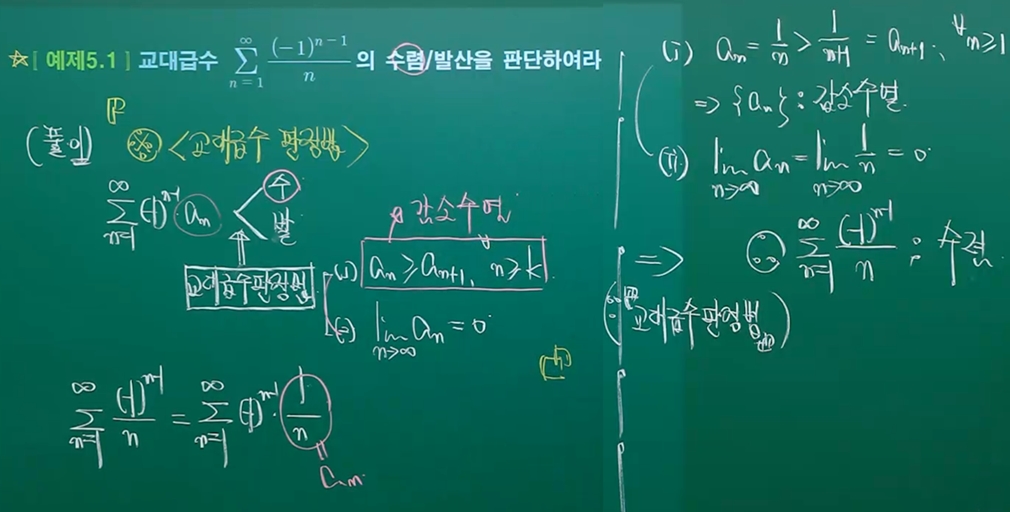 ☆[ 예제5.1 ] 교대급수 \sum_{n=1}^{\infty} \frac{(-1)^{n-1}}{n} 의 수렴/발산을 판단하여라
(풀이) ※ <교대급수 판정법>
\sum_{n=1}^{\infty} (-1)^{n-1} \cdot a_n < 수
발
교대급수판정법
감소수열
(1) a_n ≥ a_{n+1}, ∀ n ≥ k
(2) \lim_{n→∞} a_n = 0
\sum_{n=1}^{\infty} \frac{(-1)^{n-1}}{n} = \sum_{n=1}^{\infty} (-1)^{n-1} \cdot \frac{1}{n}
a_n
(i) a_n = \frac{1}{n} > \frac{1}{n+1} = a_{n+1}, ∀n ≥ 1
⇒ {a_n} : 감소수열
(ii) \lim_{n→∞} a_n = \lim_{n→∞} \frac{1}{n} = 0
⇒ ∴ \sum_{n=1}^{\infty} \frac{(-1)^{n-1}}{n} : 수렴
(∵ 교대급수판정법)